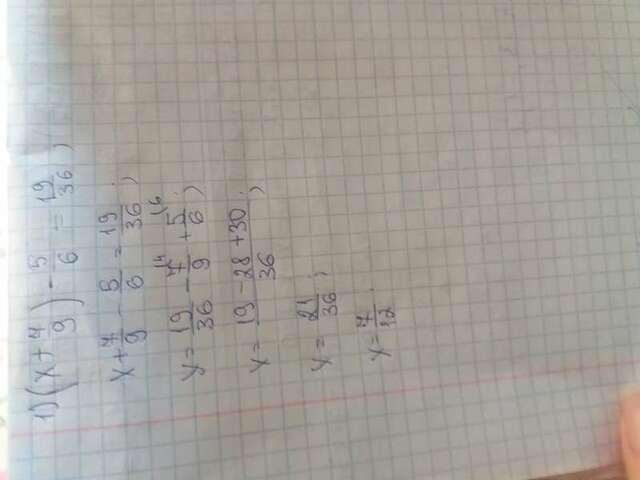 1) (x + 7/9) - 5/6 = 19/36;
x + 7/9 - 5/6 = 19/36;
x = 19/36 - 7/9 + 5/6;
x = 19 - 28 + 30 / 36;
x = 21/36;
x = 7/12.